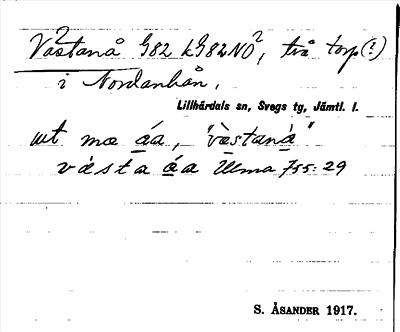 Västanå G82 k G82NO², två torp(?)
i Nordanhån,
Lillhärdals sn, Svegs tg, Jämtl. l.
ut mæ áa, "vestaná"
vásta áa Ulma 755:29
S. ÅSANDER 1917.